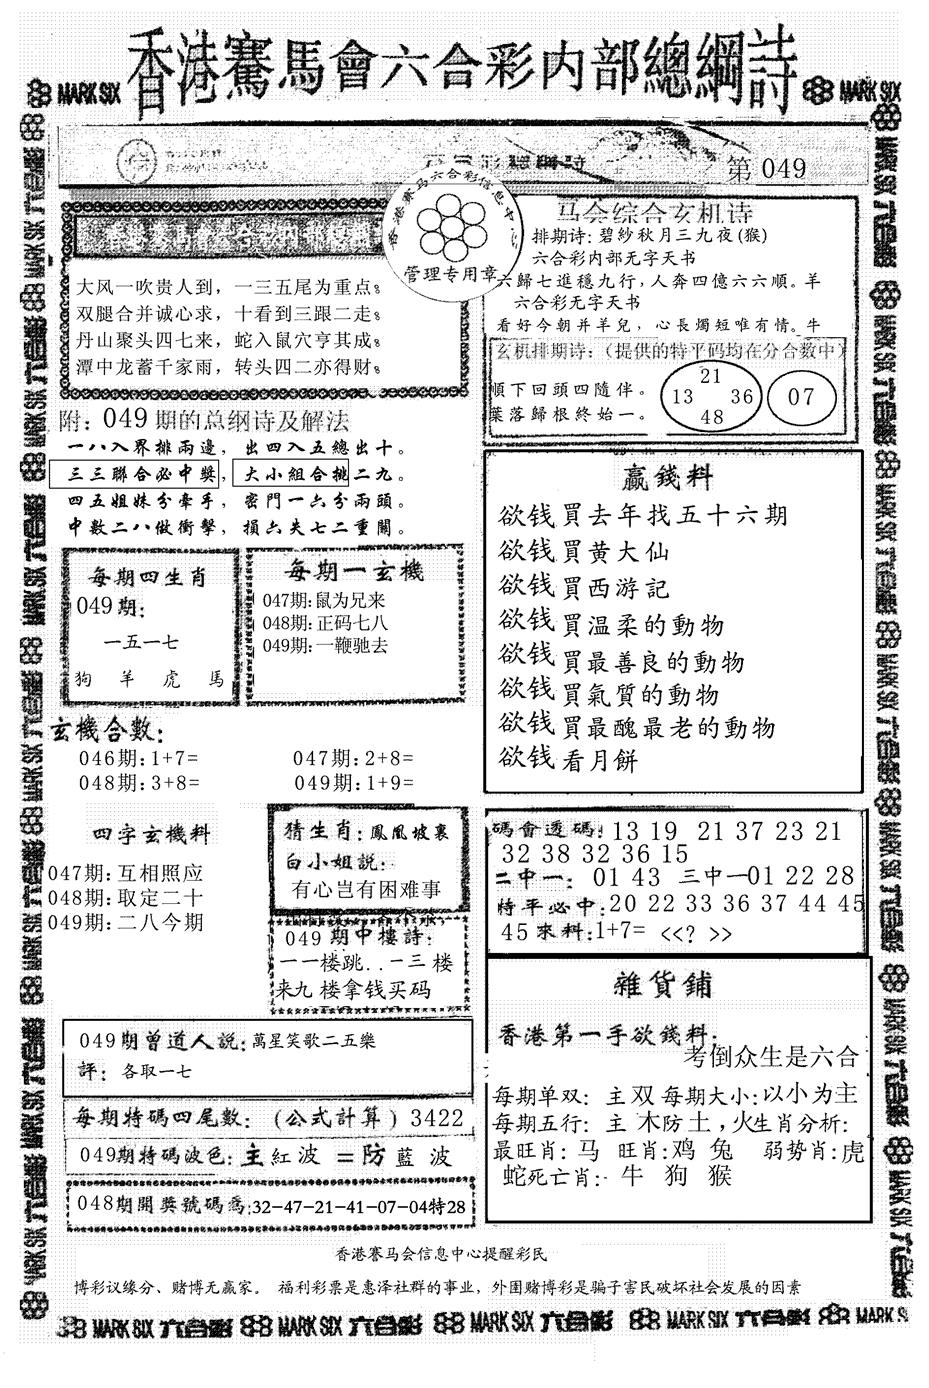 香港賽馬會六合彩内部總綱詩
MARK SIX
MARK SIX
第 049
香港赛马六合彩信息中心
管理专用章
大风一吹贵人到，一三五尾为重点。
双腿合并诚心求，十看到三跟二走。
丹山聚头四七来，蛇入鼠穴亨其成。
潭中龙蓄千家雨，转头四二亦得财。
马会综合玄机诗
排期诗: 碧紗秋月三九夜(猴)
六合彩内部无字天书
六歸七進穩九行,人奔四億六六順。羊
六合彩无字天书
看好今朝并羊兒，心長燭短唯有情。牛
玄机排期诗:（提供的特平码均在分合数中）
順下回頭四隨伴。
葉落歸根終始一。
21
13 36
48
07
附: 049期的总纲诗及解法
一八入界排兩邊，出四入五總出十。
三三聯合必中獎，大小組合挑二九。
四五姐妹分牽手，密門一六分兩頭。
中數二八做衝擊，損六失七二重關。
每期四生肖
049期:
一五一七
狗 羊 虎 馬
每期一玄機
047期:鼠为兄来
048期:正码七八
049期:一鞭驰去
赢錢料
欲钱買去年找五十六期
欲钱買黄大仙
欲钱買西游記
欲钱買温柔的動物
欲钱買最善良的動物
欲钱買氣質的動物
欲钱買最醜最老的動物
欲钱看月餅
玄機合數:
046期:1+7= 047期:2+8=
048期:3+8= 049期:1+9=
四字玄機料
047期:互相照应
048期:取定二十
049期:二八今期
猜生肖:鳳凰坡裏
白小姐説:
有心岂有困难事
049期中樓詩:
一一楼跳..一三楼
来九楼拿钱买码
碼會透碼:13 19 21 37 23 21
32 38 32 36 15
二中一: 01 43 三中一01 22 28
特平必中:20 22 33 36 37 44 45
45來料:1+7= <<? >>
049期曾道人説:萬星笑歌二五樂
評: 各取一七
每期特碼四尾數:（公式計算）3422
049期特碼波色:主紅波=防藍波
048期開獎號碼爲:32-47-21-41-07-04特28
雜貨鋪
香港第一手欲錢料:
考倒众生是六合
每期单双: 主双 每期大小:以小为主
每期五行: 主 木防土,火生肖分析:
最旺肖: 马 旺肖:鸡 兔 弱势肖:虎
蛇死亡肖: 牛 狗 猴
香港赛马会信息中心提醒彩民
博彩议缘分、赌博无赢家。 福利彩票是惠泽社群的事业，外围赌博彩是骗子害民破坏社会发展的因素
MARK SIX 六合彩 MARK SIX 六合彩 MARK SIX 六合彩 MARK SIX 六合彩 MARK SIX